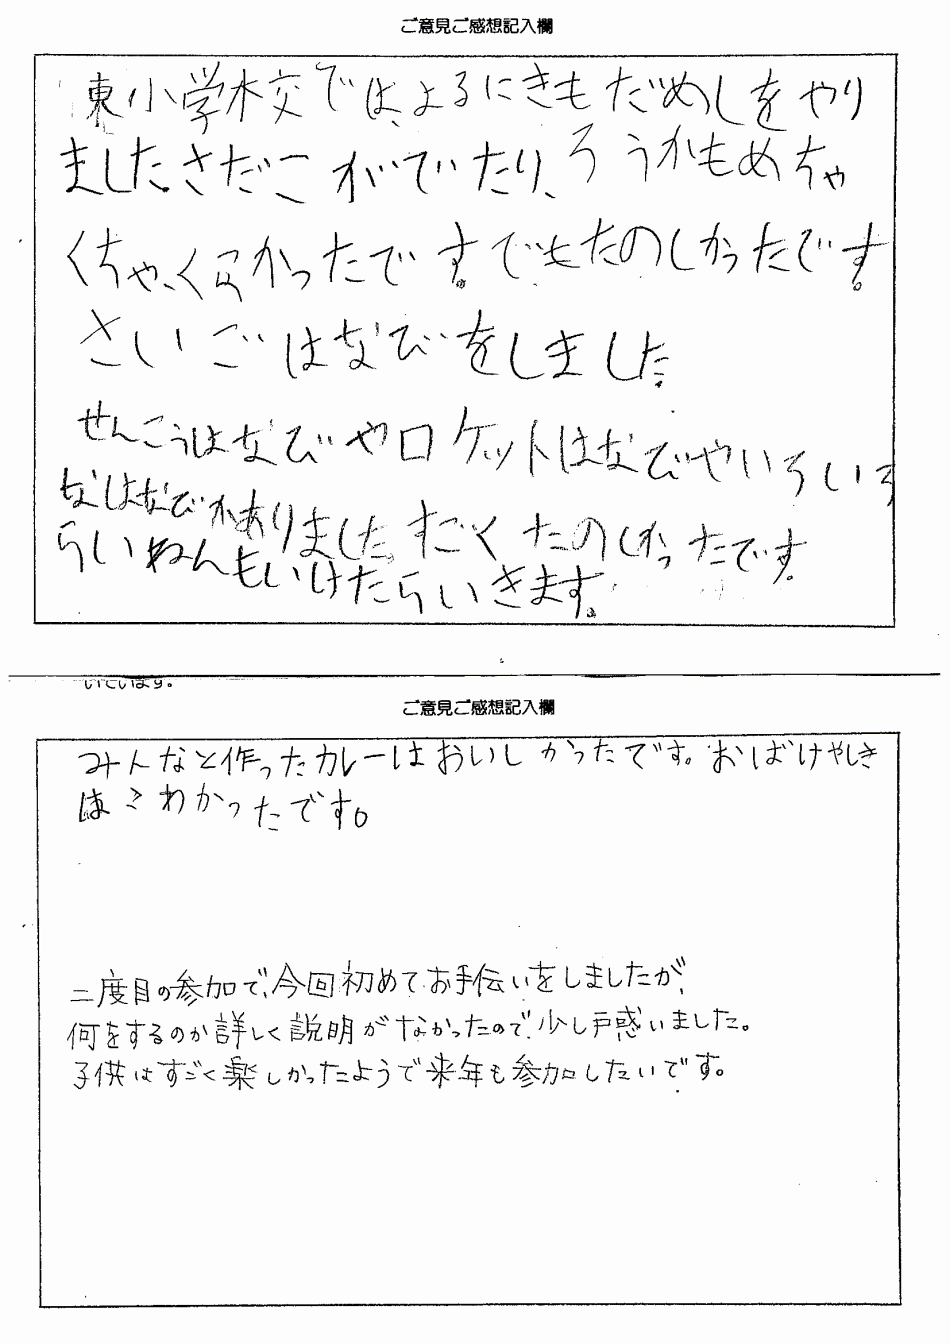 ご意見ご感想記入欄
東小学校では、よるにきもだめしをやり
ました。さだこがでていたり、ろうかもめちゃ
くちゃくらかったです。でもたのしかったです。
さいごはなびをしました。
せんこうはなびやロケットはなびやいろいろ
なはなびがありました。すごくたのしかったです。
らいねんもいけたらいきます。
いています。
ご意見ご感想記入欄
みんなと作ったカレーはおいしかったです。おばけやしき
はこわかったです。
二度目の参加で、今回初めてお手伝いをしましたが、
何をするのか詳しく説明がなかったので、少し戸惑いました。
子供はすごく楽しかったようで来年も参加したいです。